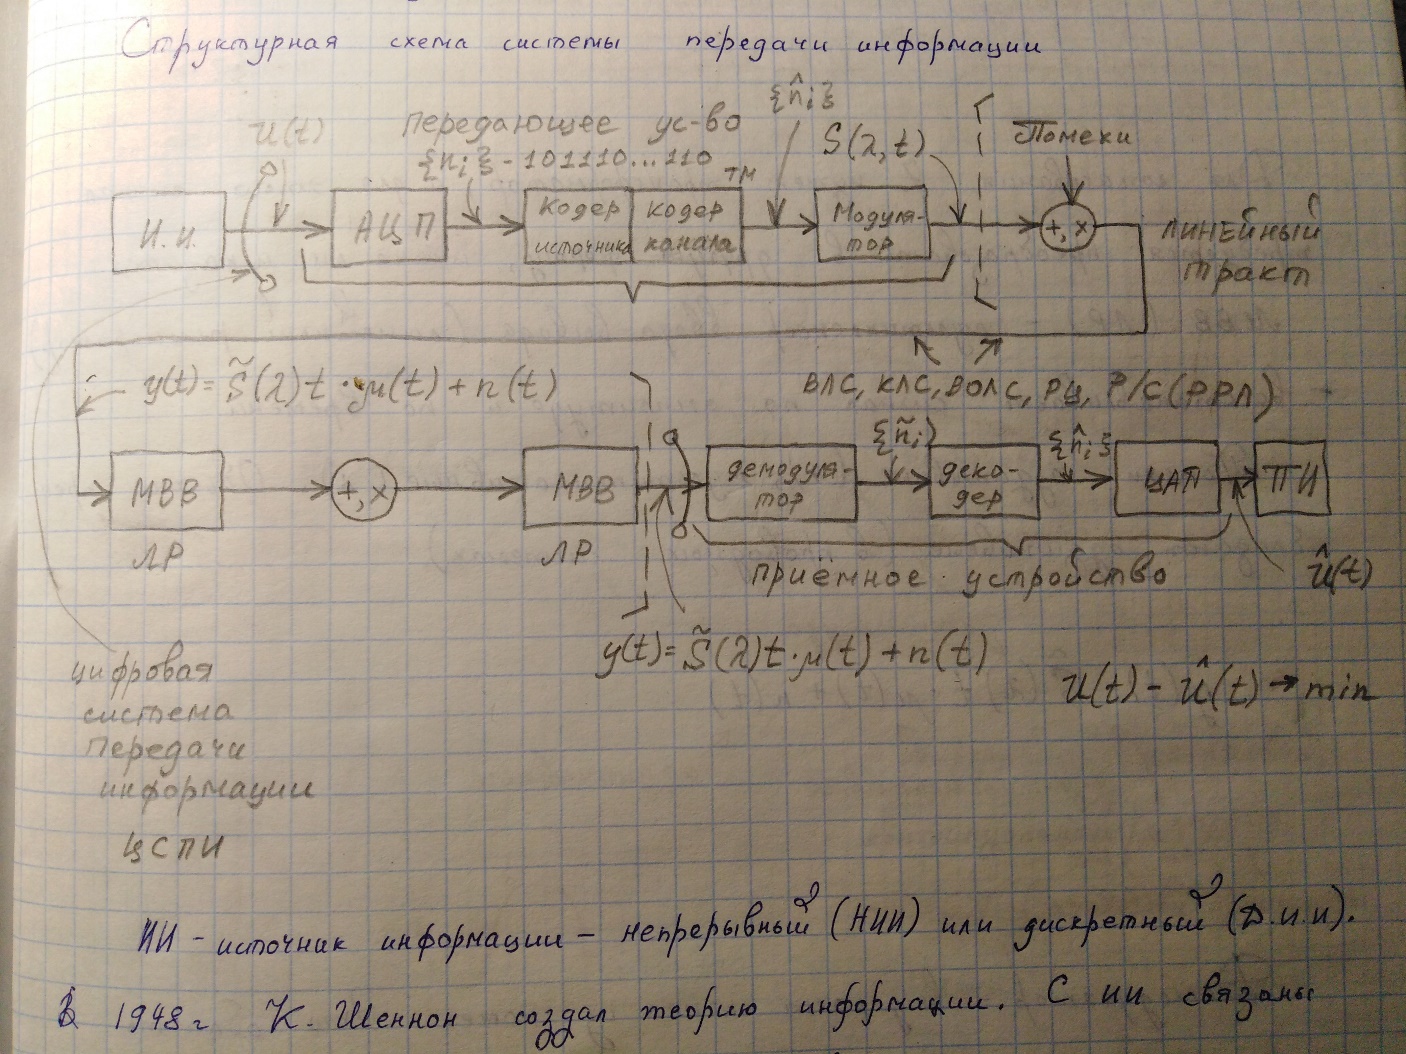 Структурная схема системы передачи информации
{n̂i}
u(t) передающее ус-во S(λ,t) Помехи
{ni} - 101110...110
ТМ
И.и. АЦП Кодер источника Кодер канала Модуля-тор +, x линейный тракт
y(t)= S̃(λ)t·μ(t)+n(t) ВЛС, КЛС, ВОЛС, РЦ, Р/С(РРЛ)
{ñi} {n̂i}
МВВ +, x МВВ демодуля-тор деко-дер ЦАП ПИ
ЛР ЛР приёмное устройство û(t)
y(t)= S̃(λ)t·μ(t)+n(t)
u(t) - û(t) → min
цифровая
система
передачи
информации
ЦСПИ
ИИ - источник информации - непрерывный (НИИ) или дискретный (Д.И.И).
В 1948г К. Шеннон создал теорию информации. С ИИ связаны